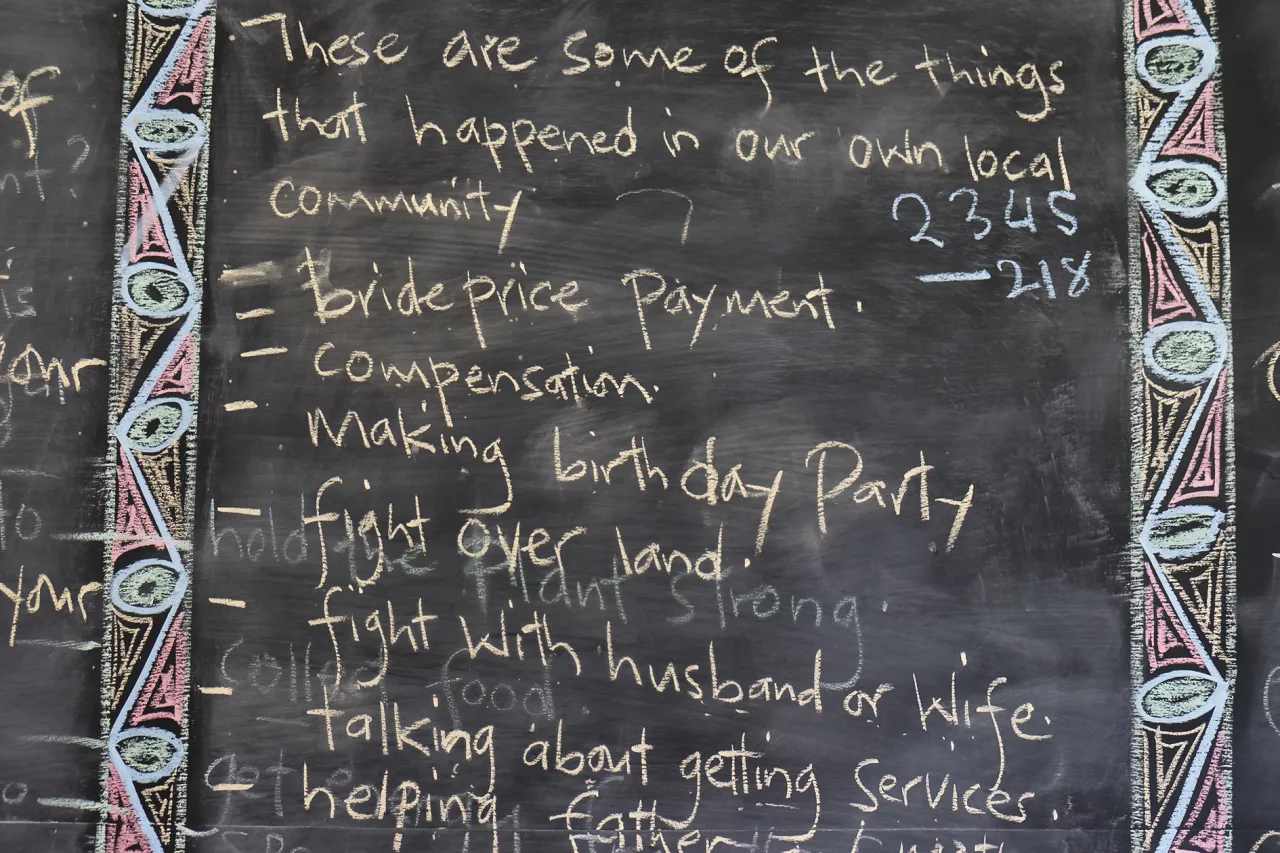 of
nt?
is
your
to
your
These are some of the things
that happened in our own local
community
2345
- 218
- bride price Payment.
- compensation.
- Making birthday Party
- fight over land.
hold the plant strong.
- fight with husband or Wife.
Collect food.
- talking about getting services.
get
- helping father